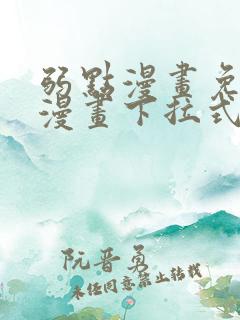 弱點漫畫免
漫畫下拉式
阮晋勇
未经同意禁止转载